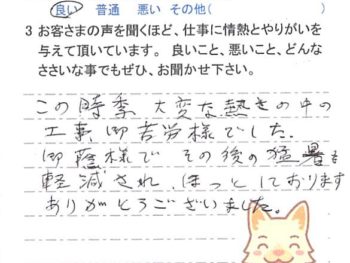 良い 普通 悪い その他( )
3 お客さまの声を聞くほど、仕事に情熱とやりがいを
与えて頂いています。 良いこと、悪いこと、どんな
ささいな事でもぜひ、お聞かせ下さい。
この時季 大変な熱さの中の
工事、御苦労様でした。
御蔭様で その後の猛暑も
軽減され、ほっとしております
ありがとうございました。